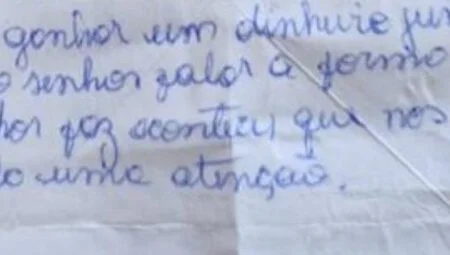 gonhor um dinhuio jun
o senhor falar a formo
hor faz acontecer que nos
do uma atençaõ.